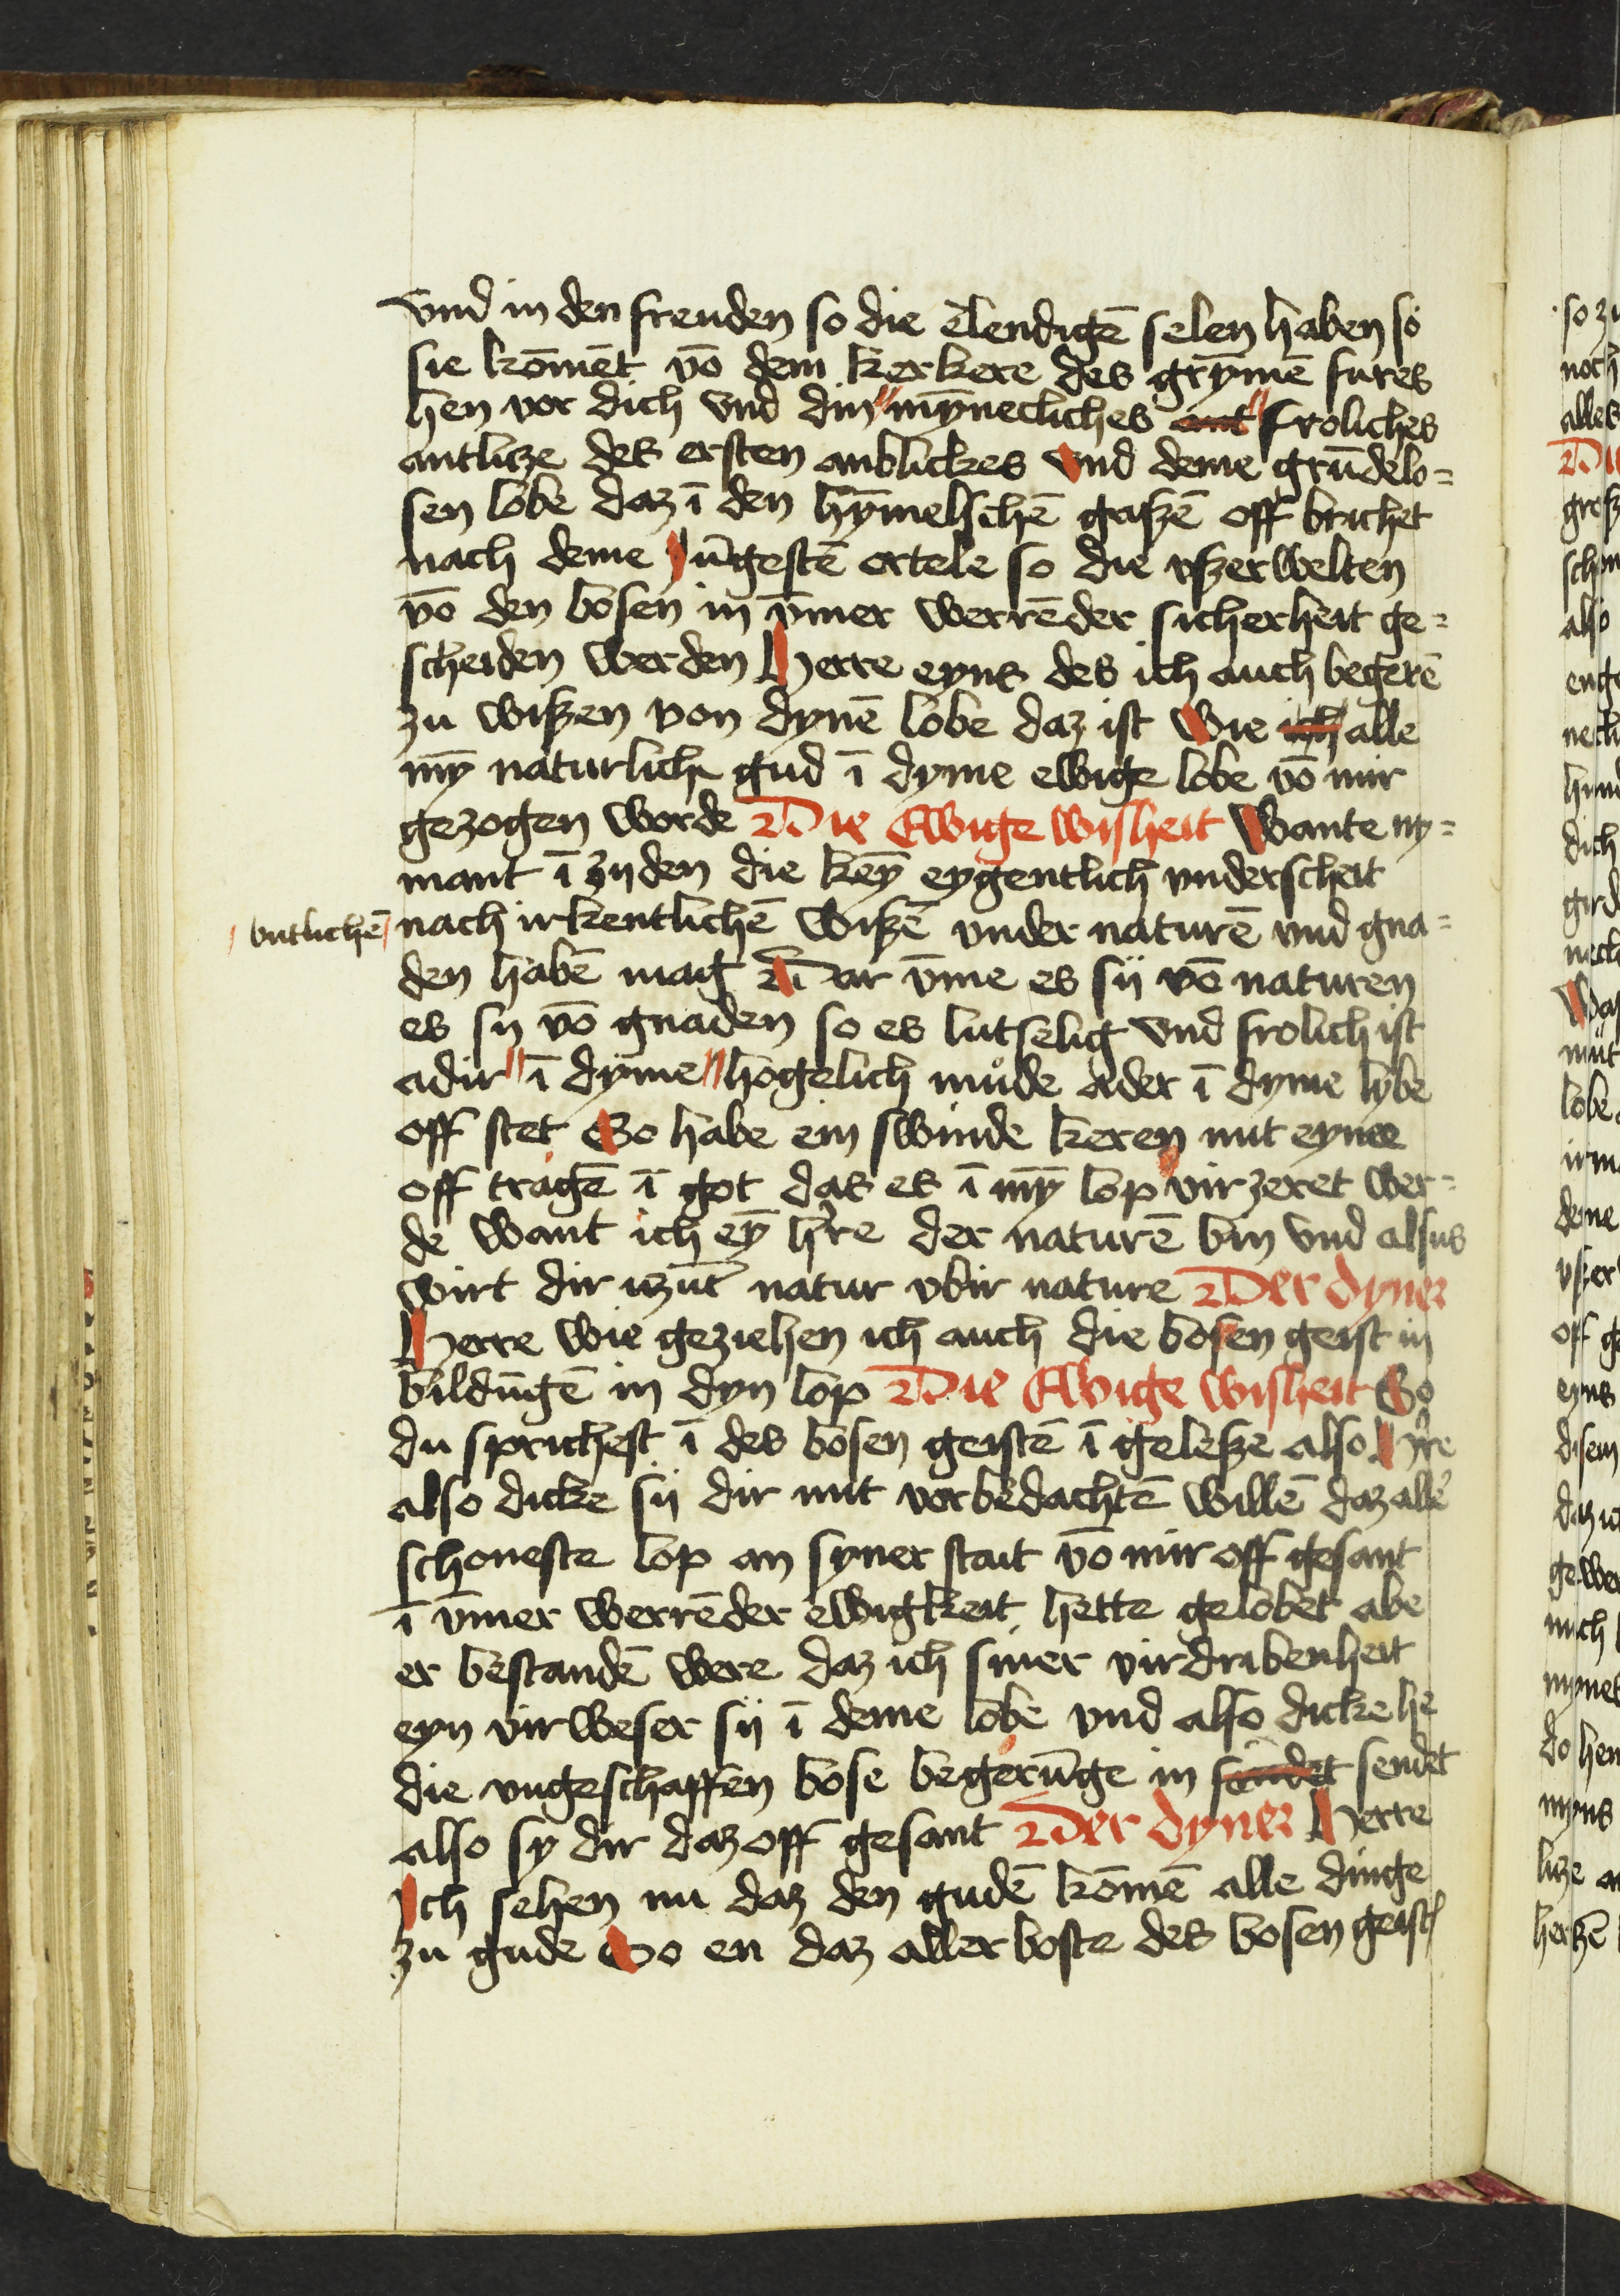 vnd in den freuden so die elendigē selen haben so
sie kōmēt vō dem kerkere des grȳmē fures
hen vor dich vnd din mȳnecliches ant froliches
antlicze des ersten anblickes vnd deme grūdelo=
sen lobe daz ī den hȳmelschē gaszē off brichet
nach deme yūgestē ortele so die vszerwelten
vō den bosen in ȳmer werrēder sicherheit ge=
scheiden werden Herre eyns des ich auch begerē
zu wiszen von dynē lobe daz ist wie ich alle
mȳ naturlich gud ī dyme ewige lobe vō mir
gezogen worde Die Ewige wisheit Wante ny=
mant ī zyden die keȳ eygentlich vnderscheit
butlichē
nach irkentlichē wiszē vnder naturē vnd gna=
den habē mag Dar v̄me es sij vō naturen
es sy vō gnaden so es lutselig vnd frolich ist
adir ī dyme hogelich mude ader ī dyme lybe
off stet So habe ein swinde keren mit eynee
off tragē ī got das es ī mȳ lop vir zeret wer=
de want ich eȳ h're der naturē bin vnd alsus
wirt dir uzūt natur vbir nature Der dyner
Herre wie geziehen ich auch die bosen geist in
bildūgē in dyn lop Die Ewige wisheit So
du sprichest ī des bosen geistē ī gelesze also H're
also dicke sij dir mit vorbedachtē willē daz alle'
schoneste lop an syner stait vō mir off gesant
ī ȳmer werrēder ewigkeit hette gelobet abe
er bestandē were daz ich siner virdribenheit
eyn vir weser sij ī deme lobe vnd also dicke he
die vngeschaffen bose begerūge in sendet sendet
also sy dir daz off gesant Der dyner Herre
Ich sehen nu daz den gudē kōmē alle dinge
zu gude So en daz aller boste des bosen geist